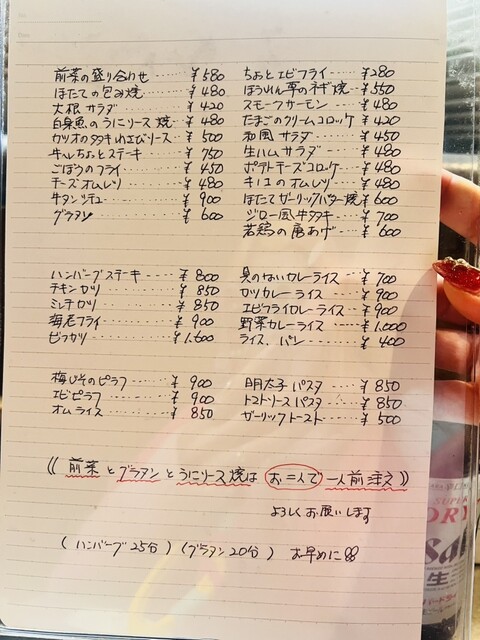 前菜の盛り合わせ ‥‥ ¥580
ほたての包み焼 ‥‥‥ ¥480
大根サラダ ‥‥‥‥ ¥420
白身魚のうにソース焼 ‥ ¥480
カツオのタタキわさびソース ‥ ¥500
牛ヒレちょとステーキ ‥‥ ¥750
ごぼうのフライ ‥‥‥ ¥450
チーズオムレツ ‥‥‥ ¥480
牛タンシチュー ‥‥‥ ¥900
グラタン ‥‥‥‥ ¥600
ちょとエビフライ ‥‥‥ ¥280
ほうれん草のネギ焼 ‥‥ ¥550
スモークサーモン ‥‥‥ ¥480
たまごのクリームコロッケ ‥ ¥420
和風サラダ ‥‥‥ ¥450
生ハムサラダ ‥‥‥ ¥480
ポテトチーズコロッケ ‥‥ ¥480
キノコのオムレツ ‥‥ ¥480
ほたてガーリックバター焼 ‥ ¥600
ジロー風牛タタキ ‥‥ ¥700
若鶏の唐あげ ‥‥ ¥600
ハンバーグステーキ ‥‥ ¥800
チキンカツ ‥‥‥‥ ¥850
ミンチカツ ‥‥‥‥ ¥850
海老フライ ‥‥‥‥ ¥900
ビフカツ ‥‥‥‥ ¥1,600
具のないカレーライス ‥‥ ¥700
カツカレーライス ‥‥‥ ¥900
エビフライカレーライス ‥‥ ¥900
野菜カレーライス ‥‥‥ ¥1,000
ライス、パン ‥‥‥‥ ¥400
梅じそのピラフ ‥‥ ¥900
エビピラフ ‥‥‥‥ ¥900
オムライス ‥‥‥‥ ¥850
明太子パスタ ‥‥‥ ¥850
トマトソースパスタ ‥‥ ¥850
ガーリックトースト ‥‥ ¥500
((前菜とグラタンとうにソース焼は お二人で 一人前注文))
よろしくお願いします
(ハンバーグ25分)(グラタン20分) お早めに
SUPER
DRY
Asahi
生